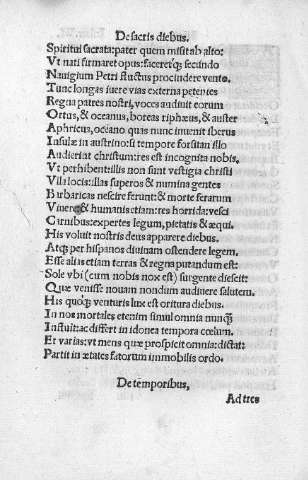 De sacris diebus.
Spiritui sacrata: pater quem misit ab alto:
Vt nati firmaret opus: faceretq̃ secundo
Nauigium Petri fluctus procindere vento.
Tunc longas iuere vias externa petentes
Regna patres nostri, voces audiuit eorum
Ortus, & oceanus, boreas riphæus, & auster
Aphricus, oceano quas nunc inuenit iberus
Insulæ in austrino: si tempore forsitan illo
Audierint christum: res est incognita nobis.
Vt perhibent illis non sunt vestigia christi
Vlla locis: illas superos & numina gentes
Barbaricas nescire ferunt: & morte ferarum
Viuere & humanis: etiam: res horrida: vesci
Carnibus: expertes legum, pietatis & æqui.
His voluit nostris deus apparere diebus.
Atq̃ per hispanos diuinam ostendere legem.
Esse aliis etiam terras & regna putandum est:
Sole vbi (cum nobis nox est) surgente diescit:
Quæ venisse nouam nondum audiuere salutem.
His quoq̃ venturis lux est oritura diebus.
In nos mortales etenim simul omnia nunq̃
Instuit: ac differt in idonea tempora cœlum.
Et varias: vt mens quæ prospicit omnia: dictat:
Partit in ætates fatorum immobilis ordo.
De temporibus,
Ad tres